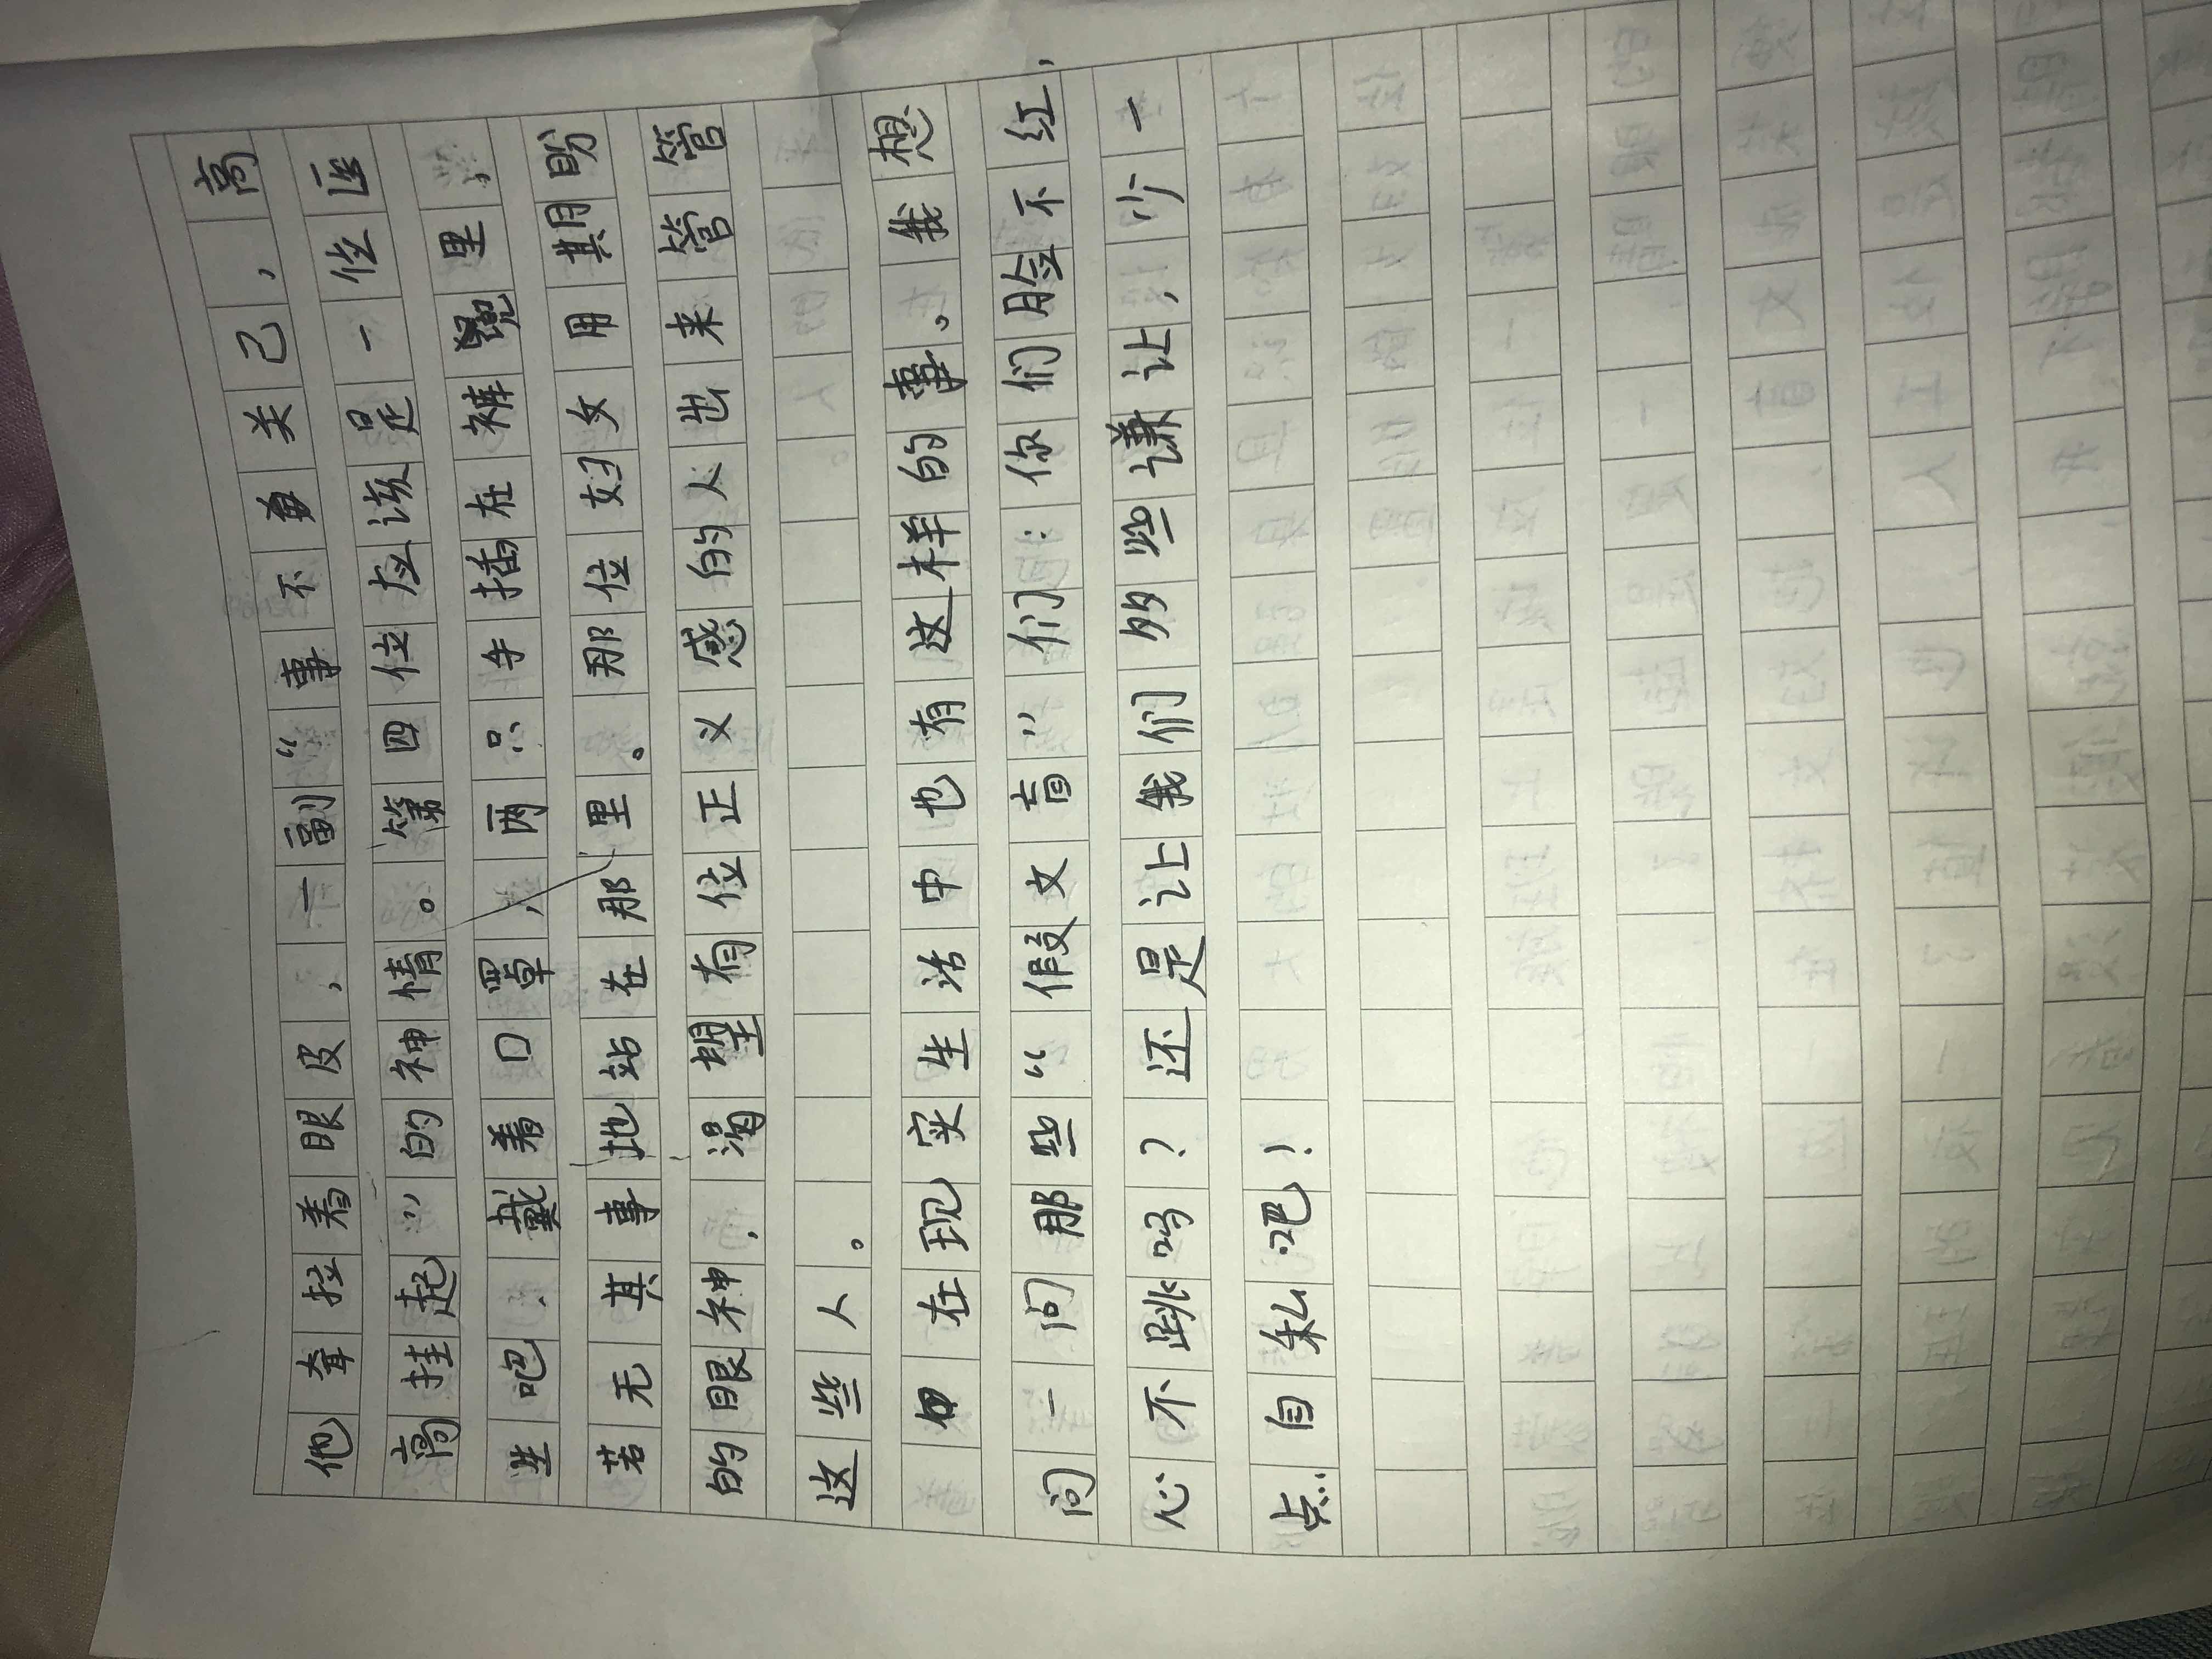 他耷拉着眼皮，一副“事不关己，高
高挂起”的神情。第四位应该是一位医
生吧，戴着口罩，两只手插在裤兜里，
若无其事地站在那里。那位妇女用期盼
的眼神，渴望有位正义感的人出来管管
这些人。
在现实生活中也有这样的事。我想
问一问那些“假文盲”们：你们脸不红，
心不跳吗？还是让我们多些谦让，少一
点自私吧！